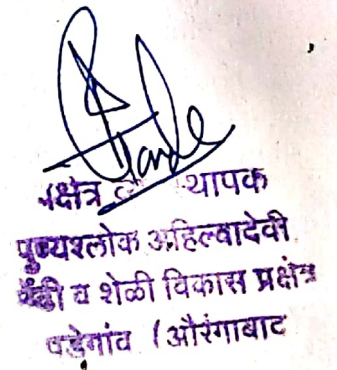 प्रक्षेत्र व्यवस्थापक
पुण्यश्लोक अहिल्यादेवी
मेंढी व शेळी विकास प्रक्षेत्र
पडेगांव (औरंगाबाद